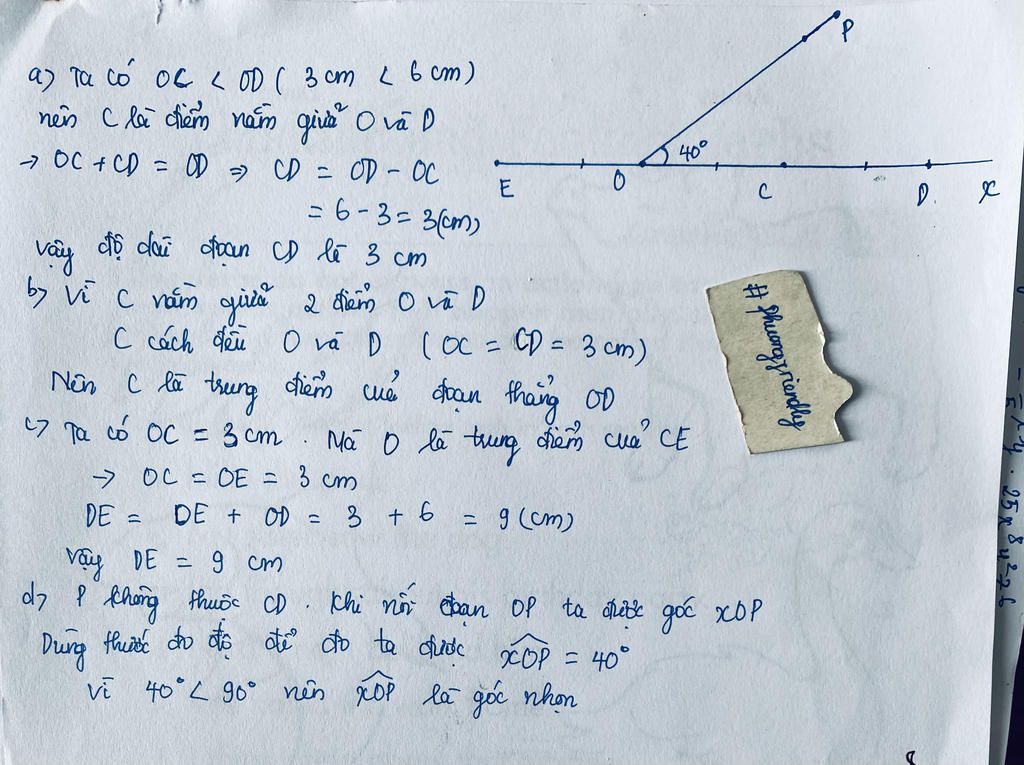 a) Ta có OC < OD ( 3 cm < 6 cm )
nên C là điểm nằm giữa O và D
→ OC + CD = OD ⇒ CD = OD - OC
= 6 - 3 = 3 (cm)
Vậy độ dài đoạn CD là 3 cm
b) Vì C nằm giữa 2 điểm O và D
C cách đều O và D ( OC = CD = 3 cm )
Nên C là trung điểm của đoạn thẳng OD
c) Ta có OC = 3 cm . Mà O là trung điểm của CE
→ OC = OE = 3 cm
DE = OE + OD = 3 + 6 = 9 (cm)
Vậy DE = 9 cm
d) P không thuộc CD . Khi nối đoạn OP ta được góc xOP
Dùng thước đo độ để đo ta được xOP = 40°
Vì 40° < 90° nên xOP là góc nhọn
P
40°
E O C D. x
#phuongfriendly